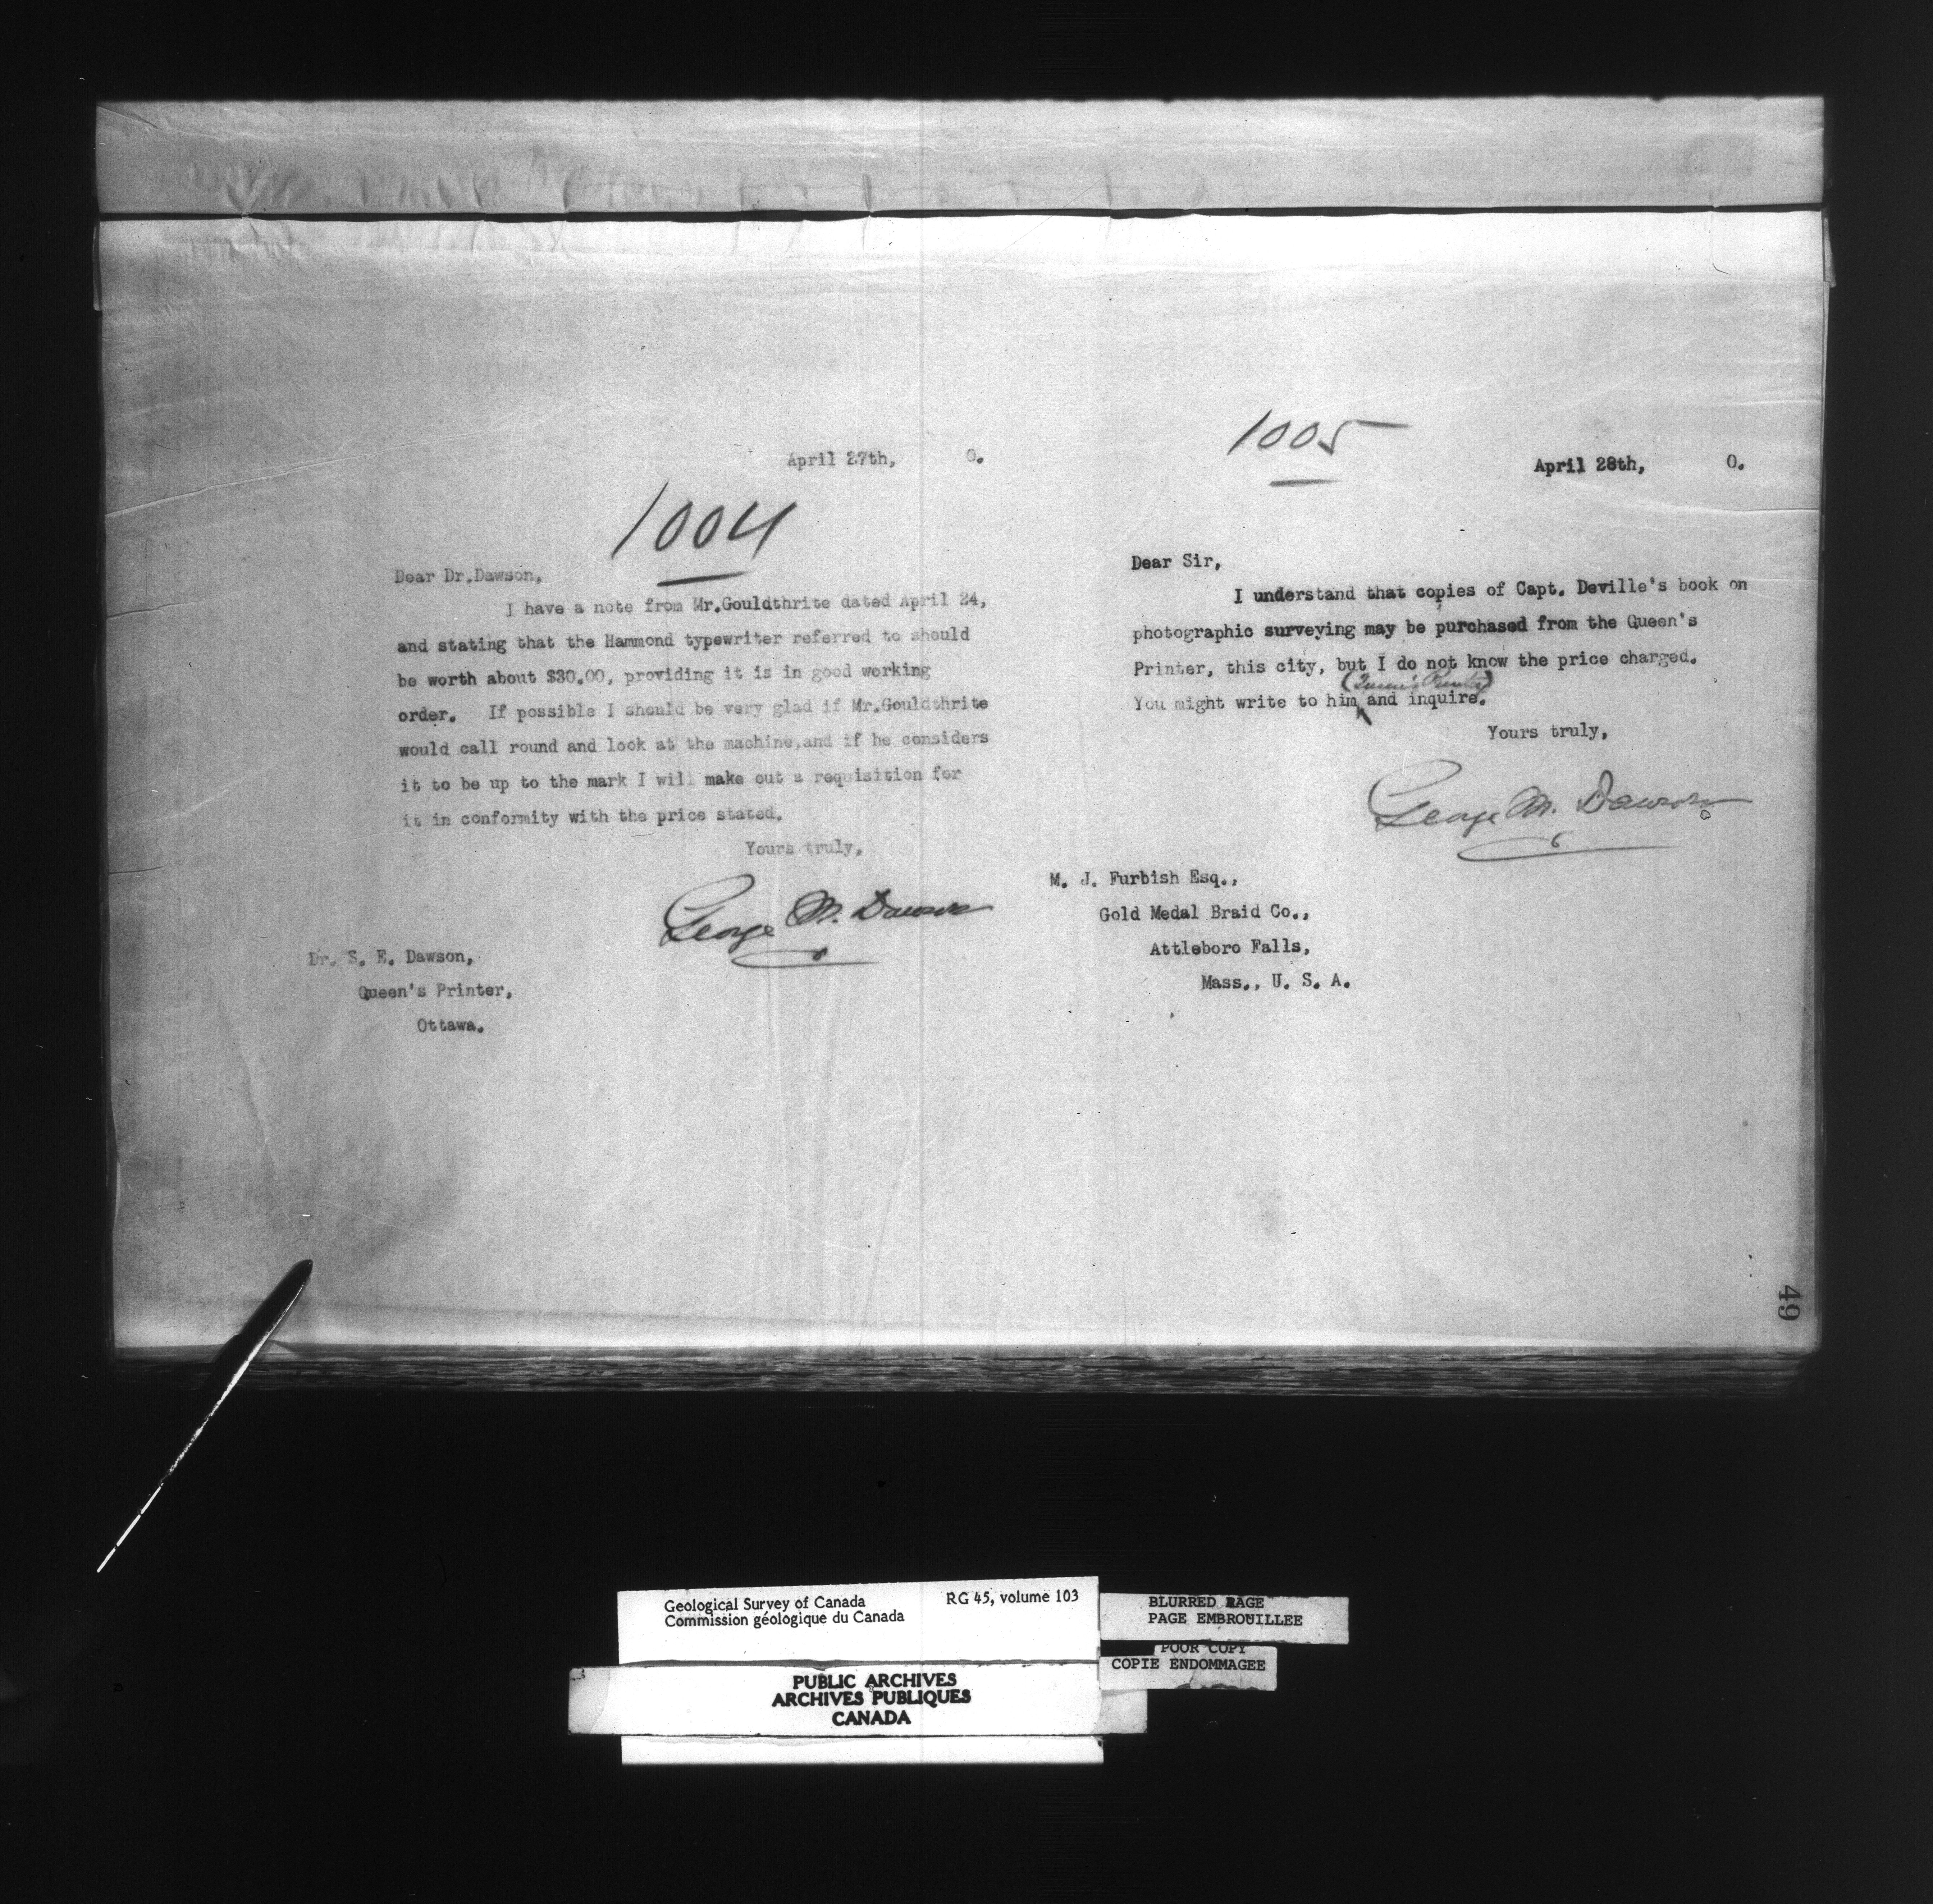 April 27th, 0.
1004
Dear Dr.Dawson,
I have a note from Mr.Gouldthrite dated April 24,
and stating that the Hammond typewriter referred to should
be worth about $30.00, providing it is in good working
order. If possible I should be very glad if Mr.Gouldthrite
would call round and look at the machine,and if he considers
it to be up to the mark I will make out a requisition for
it in conformity with the price stated.
Yours truly,
George M. Dawson
Dr. S. E. Dawson,
Queen's Printer,
Ottawa.
1005
April 28th, 0.
Dear Sir,
I understand that copies of Capt. Deville's book on
photographic surveying may be purchased from the Queen's
Printer, this city, but I do not know the price charged.
(Queen's Printer)
You might write to him and inquire.
Yours truly,
George M. Dawson
M. J. Furbish Esq.,
Gold Medal Braid Co.,
Attleboro Falls,
Mass., U. S. A.
49
Geological Survey of Canada RG 45, volume 103
Commission géologique du Canada
BLURRED PAGE
PAGE EMBROUILLEE
POOR COPY
COPIE ENDOMMAGEE
PUBLIC ARCHIVES
ARCHIVES PUBLIQUES
CANADA